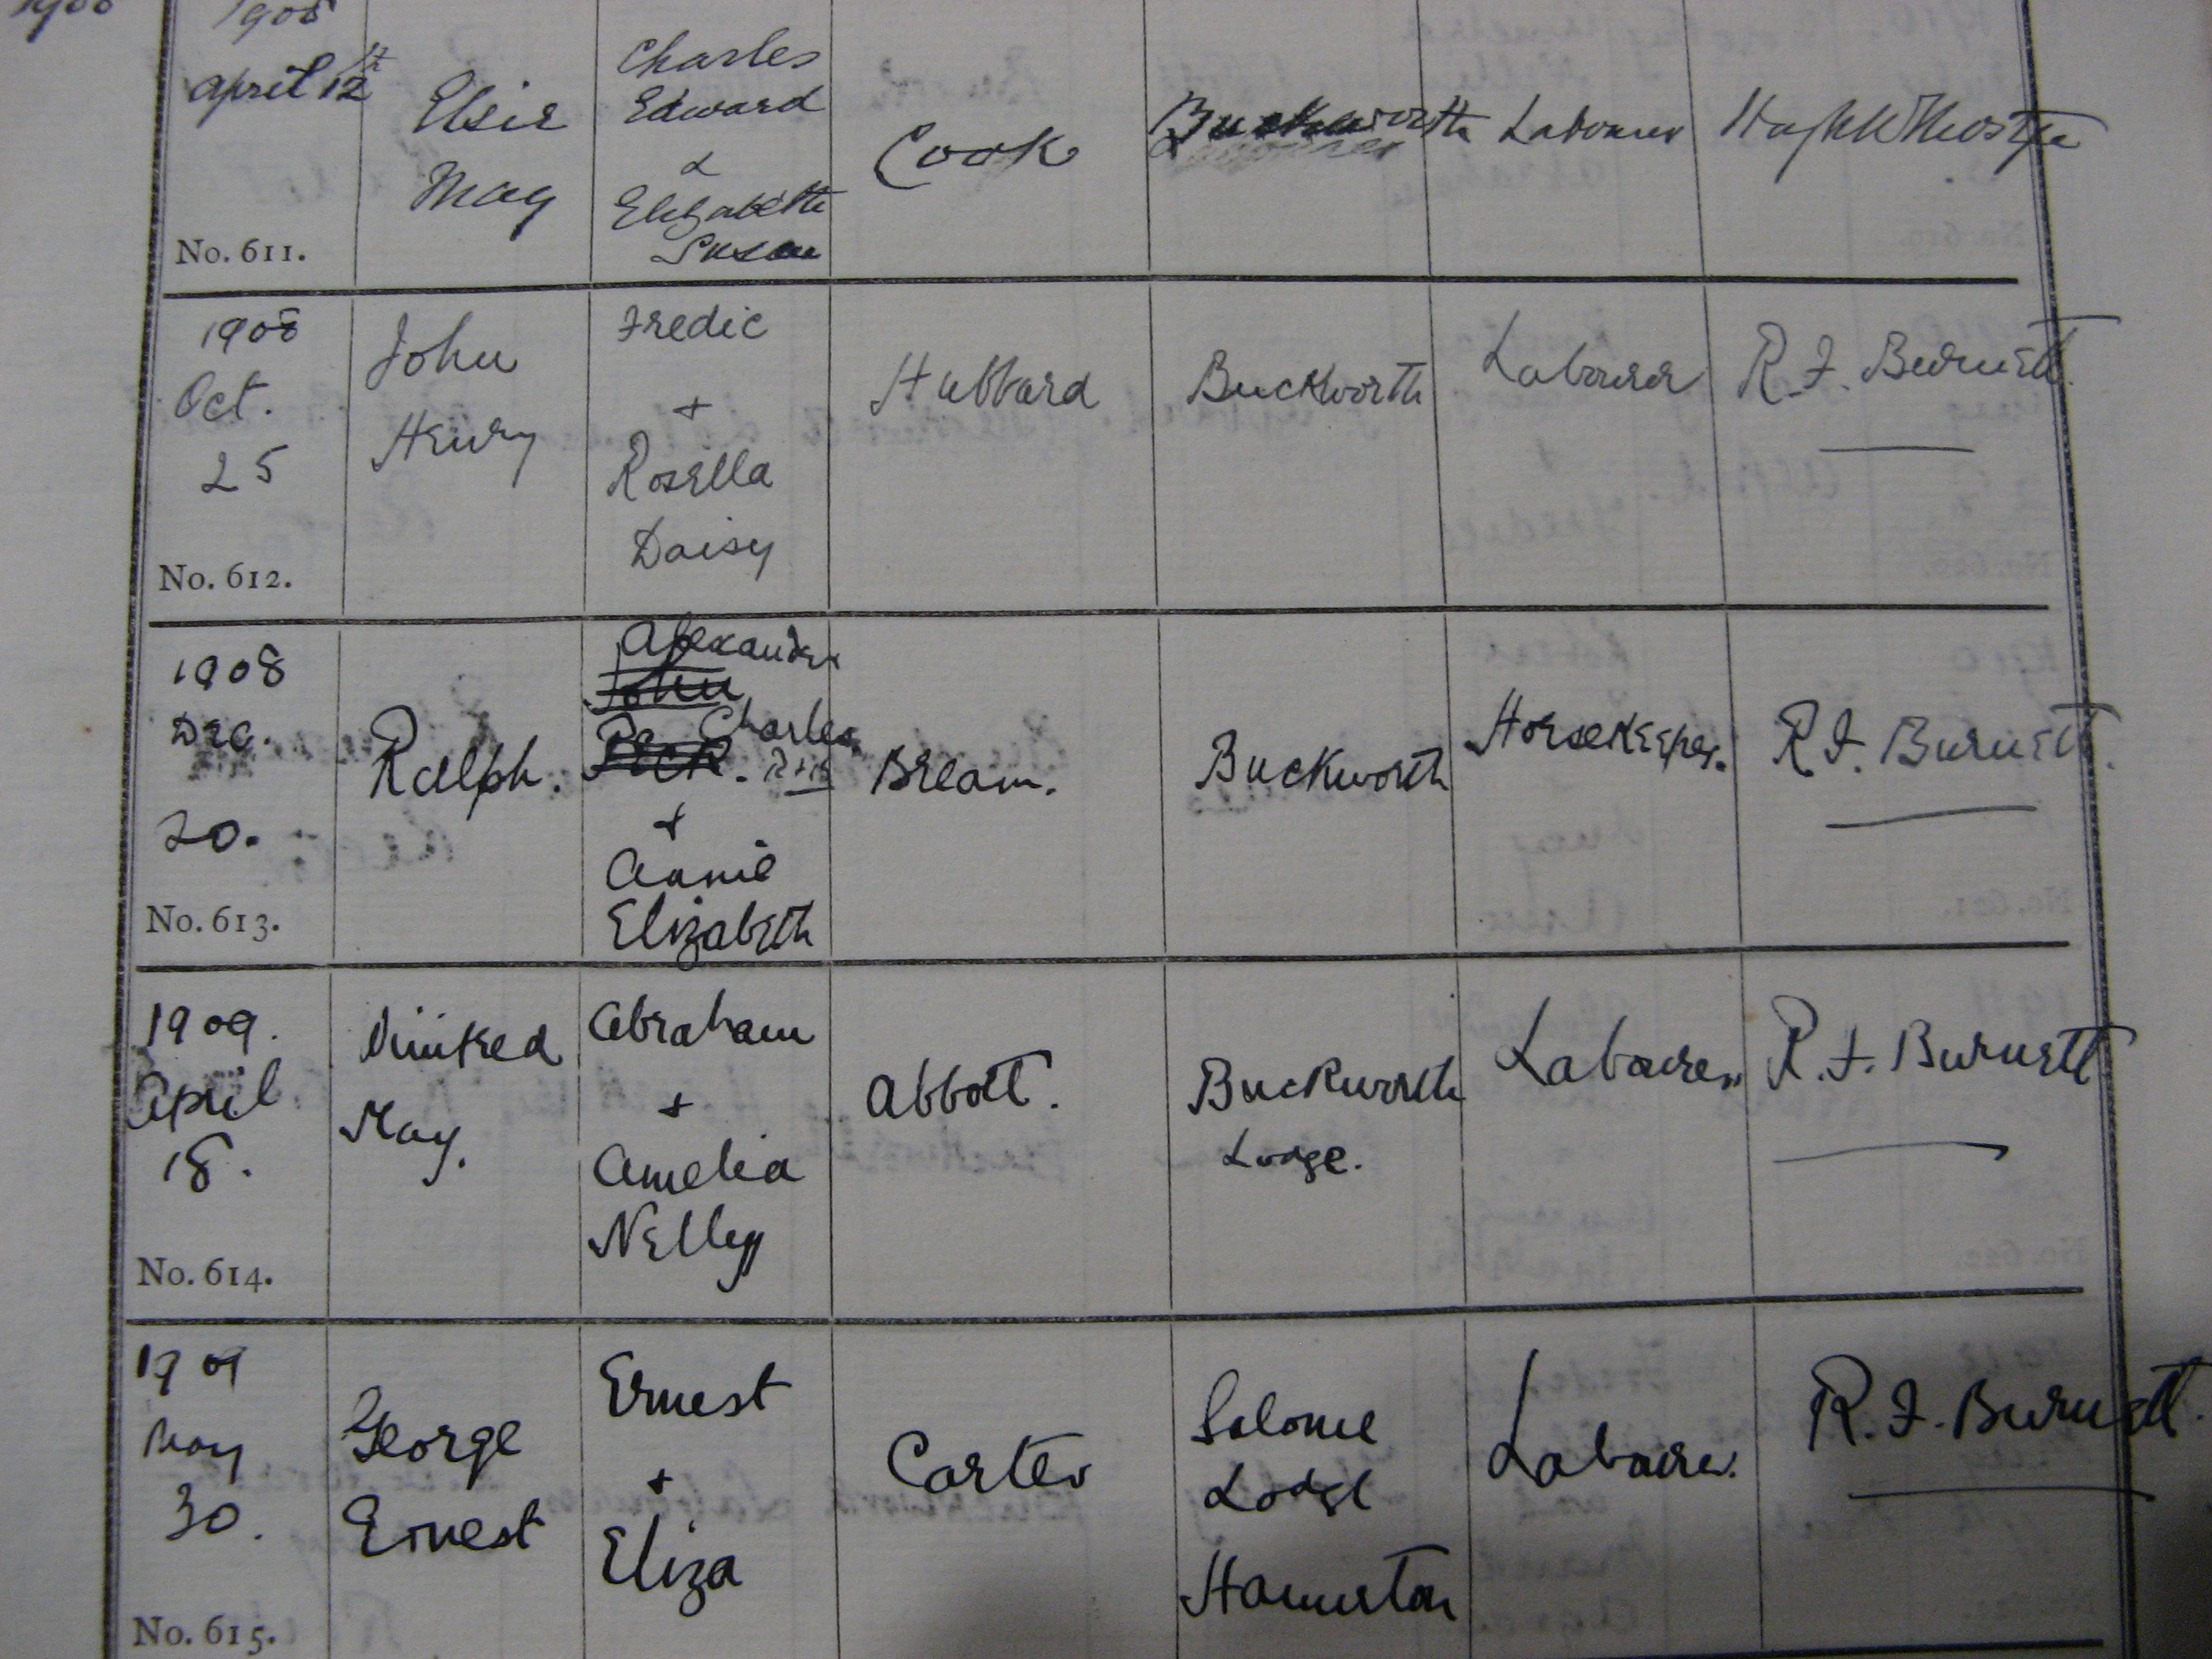 1908
April 12th
Elsie
May
Charles
Edward
&
Elizabeth
Susan
Cook
Buckworth
Labourer
No. 611.
1908
Oct.
25
John
Henry
Fredic
+
Rosella
Daisy
Hubbard
Buckworth
Labourer
R. F. Burnett.
No. 612.
1908
Dec.
20.
Ralph.
Alexander
John
Peck.
Charles
+
Annie
Elizabeth
Bream.
Buckworth
Horsekeeper.
R. F. Burnett.
No. 613.
1909.
April
18.
Winifred
May.
Abraham
+
Amelia
Nelly
Abbott.
Buckworth
Lodge.
Labourer
R. F. Burnett
No. 614.
1909
May
30.
George
Ernest
Ernest
+
Eliza
Carter
Salome
Lodge
Hamerton
Labourer.
R. F. Burnett.
No. 615.